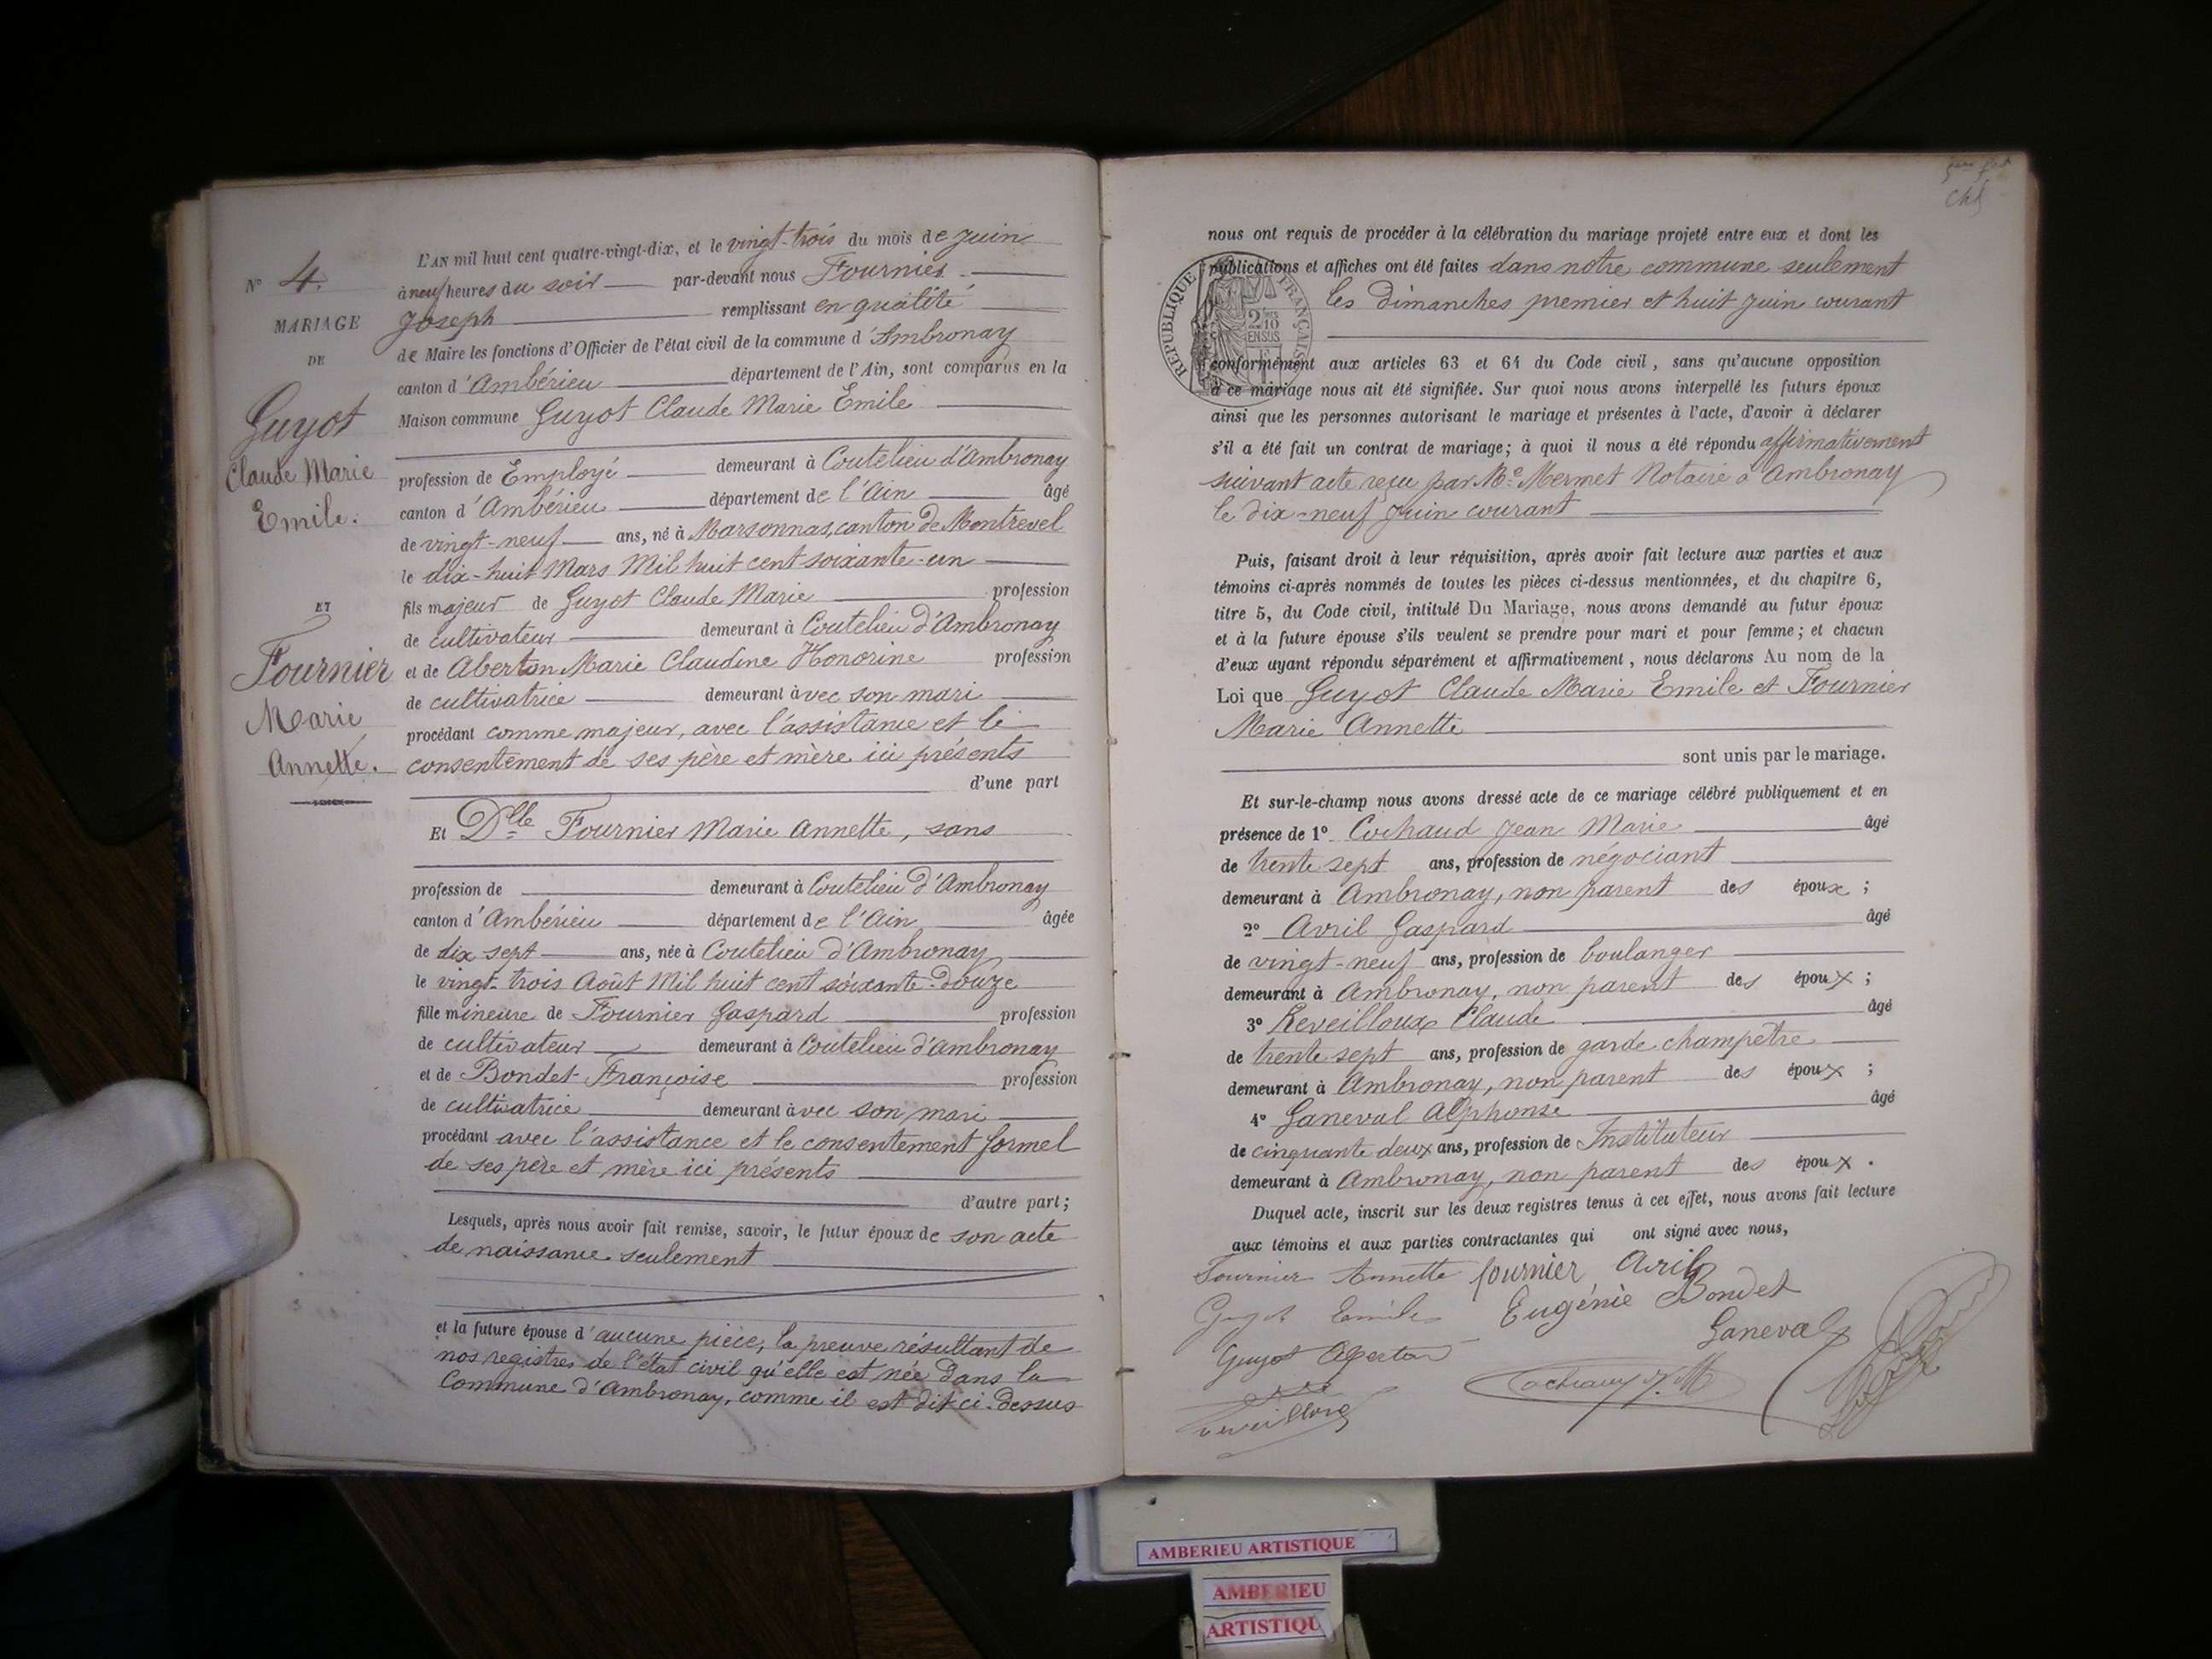 N° 4.
MARIAGE
DE
Guyot
Claude Marie
Emile.
ET
Fournier
Marie
Annette.
L'AN mil huit cent quatre-vingt-dix, et le vingt-trois du mois de juin
à neuf heures du soir par-devant nous Fournier
Joseph remplissant en qualité
de Maire les fonctions d'Officier de l'état civil de la commune d'Ambronay
canton d'Ambérieu département de l'Ain, sont comparus en la
Maison commune Guyot Claude Marie Emile
profession de Employé demeurant à Coutelieu d'Ambronay
canton d'Ambérieu département de l'Ain âgé
de vingt-neuf ans, né à Marsonnas, canton de Montrevel
le dix-huit Mars Mil huit cent soixante-un
fils majeur de Guyot Claude Marie profession
de cultivateur demeurant à Coutelieu d'Ambronay
et de Aberton Marie Claudine Honorine profession
de cultivatrice demeurant avec son mari
procédant comme majeur, avec l'assistance et le
consentement de ses père et mère ici présents
d'une part
Et Dlle Fournier Marie Annette, sans
profession de demeurant à Coutelieu d'Ambronay
canton d'Ambérieu département de l'Ain âgée
de dix sept ans, née à Coutelieu d'Ambronay
le vingt-trois Août Mil huit cent soixante-douze
fille mineure de Fournier Gaspard profession
de cultivateur demeurant à Coutelieu d'Ambronay
et de Bondet Françoise profession
de cultivatrice demeurant avec son mari
procédant avec l'assistance et le consentement formel
de ses père et mère ici présents
d'autre part;
Lesquels, après nous avoir fait remise, savoir, le futur époux de son acte
de naissance seulement
et la future épouse d'aucune pièce, la preuve résultant de
nos registres de l'état civil qu'elle est née dans la
Commune d'Ambronay, comme il est dit ci-dessus
nous ont requis de procéder à la célébration du mariage projeté entre eux et dont les
publications et affiches ont été faites dans notre commune seulement
les dimanches premier et huit juin courant
RÉPUBLIQUE FRANÇAISE
2/10
EN SUS
conformément aux articles 63 et 64 du Code civil, sans qu'aucune opposition
à ce mariage nous ait été signifiée. Sur quoi nous avons interpellé les futurs époux
ainsi que les personnes autorisant le mariage et présentes à l'acte, d'avoir à déclarer
s'il a été fait un contrat de mariage; à quoi il nous a été répondu affirmativement
suivant acte reçu par Me Mermet Notaire à Ambronay
le dix-neuf juin courant
Puis, faisant droit à leur réquisition, après avoir fait lecture aux parties et aux
témoins ci-après nommés de toutes les pièces ci-dessus mentionnées, et du chapitre 6,
titre 5, du Code civil, intitulé Du Mariage, nous avons demandé au futur époux
et à la future épouse s'ils veulent se prendre pour mari et pour femme; et chacun
d'eux ayant répondu séparément et affirmativement, nous déclarons Au nom de la
Loi que Guyot Claude Marie Emile et Fournier
Marie Annette
sont unis par le mariage.
Et sur-le-champ nous avons dressé acte de ce mariage célébré publiquement et en
présence de 1° Cochaud Jean Marie âgé
de trente sept ans, profession de négociant
demeurant à Ambronay, non parent des époux;
2° Avril Gaspard âgé
de vingt-neuf ans, profession de boulanger
demeurant à Ambronay, non parent des époux;
3° Reveilloux Claude âgé
de trente sept ans, profession de garde champêtre
demeurant à Ambronay, non parent des époux;
4° Ganeval Alphonse âgé
de cinquante deux ans, profession de Instituteur
demeurant à Ambronay, non parent des époux.
Duquel acte, inscrit sur les deux registres tenus à cet effet, nous avons fait lecture
aux témoins et aux parties contractantes qui ont signé avec nous,
Fournier Annette fournier Avril
Guyot Emile Eugénie Bondet
Ganeval
Guyot
AMBERIEU ARTISTIQUE
AMBERIEU
ARTISTIQU